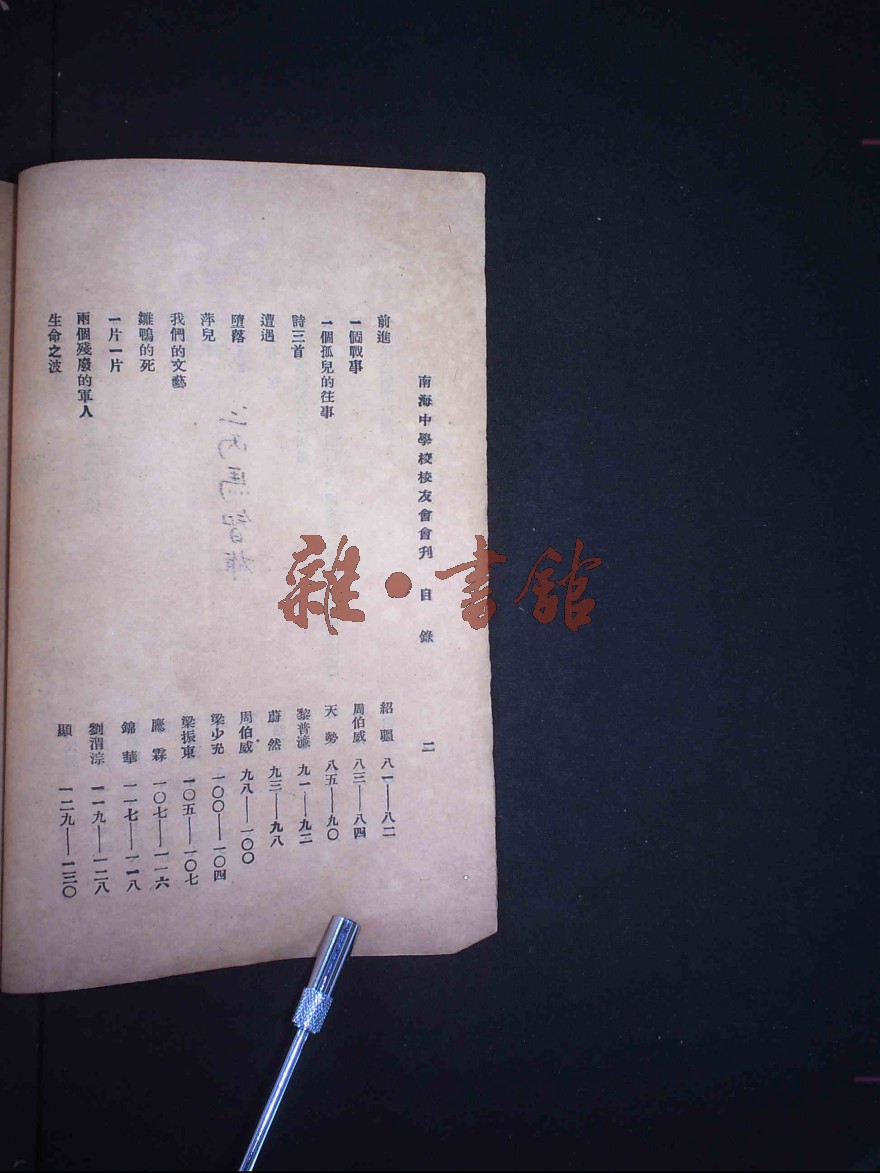 南海中學校校友會會刊 目錄 二
前進 紹疆 八一——八二
一個戰事 周伯威 八三——八四
一個孤兒的往事 天勢 八五——九〇
詩三首 黎普 九一——九二
遭遇 蔚然 九三——九八
墮落 周伯威 九八——一〇〇
萍兒 梁少充 一〇〇——一〇四
我們的文藝 梁振東 一〇五——一〇七
雛鴨的死 應霖 一〇七——一一六
一片一片 錦華 一一七——一一八
兩個殘廢的軍人 劉渭淙 一一九——一二八
生命之波 顯 一二九——一三〇
馬智雄
雜·書館